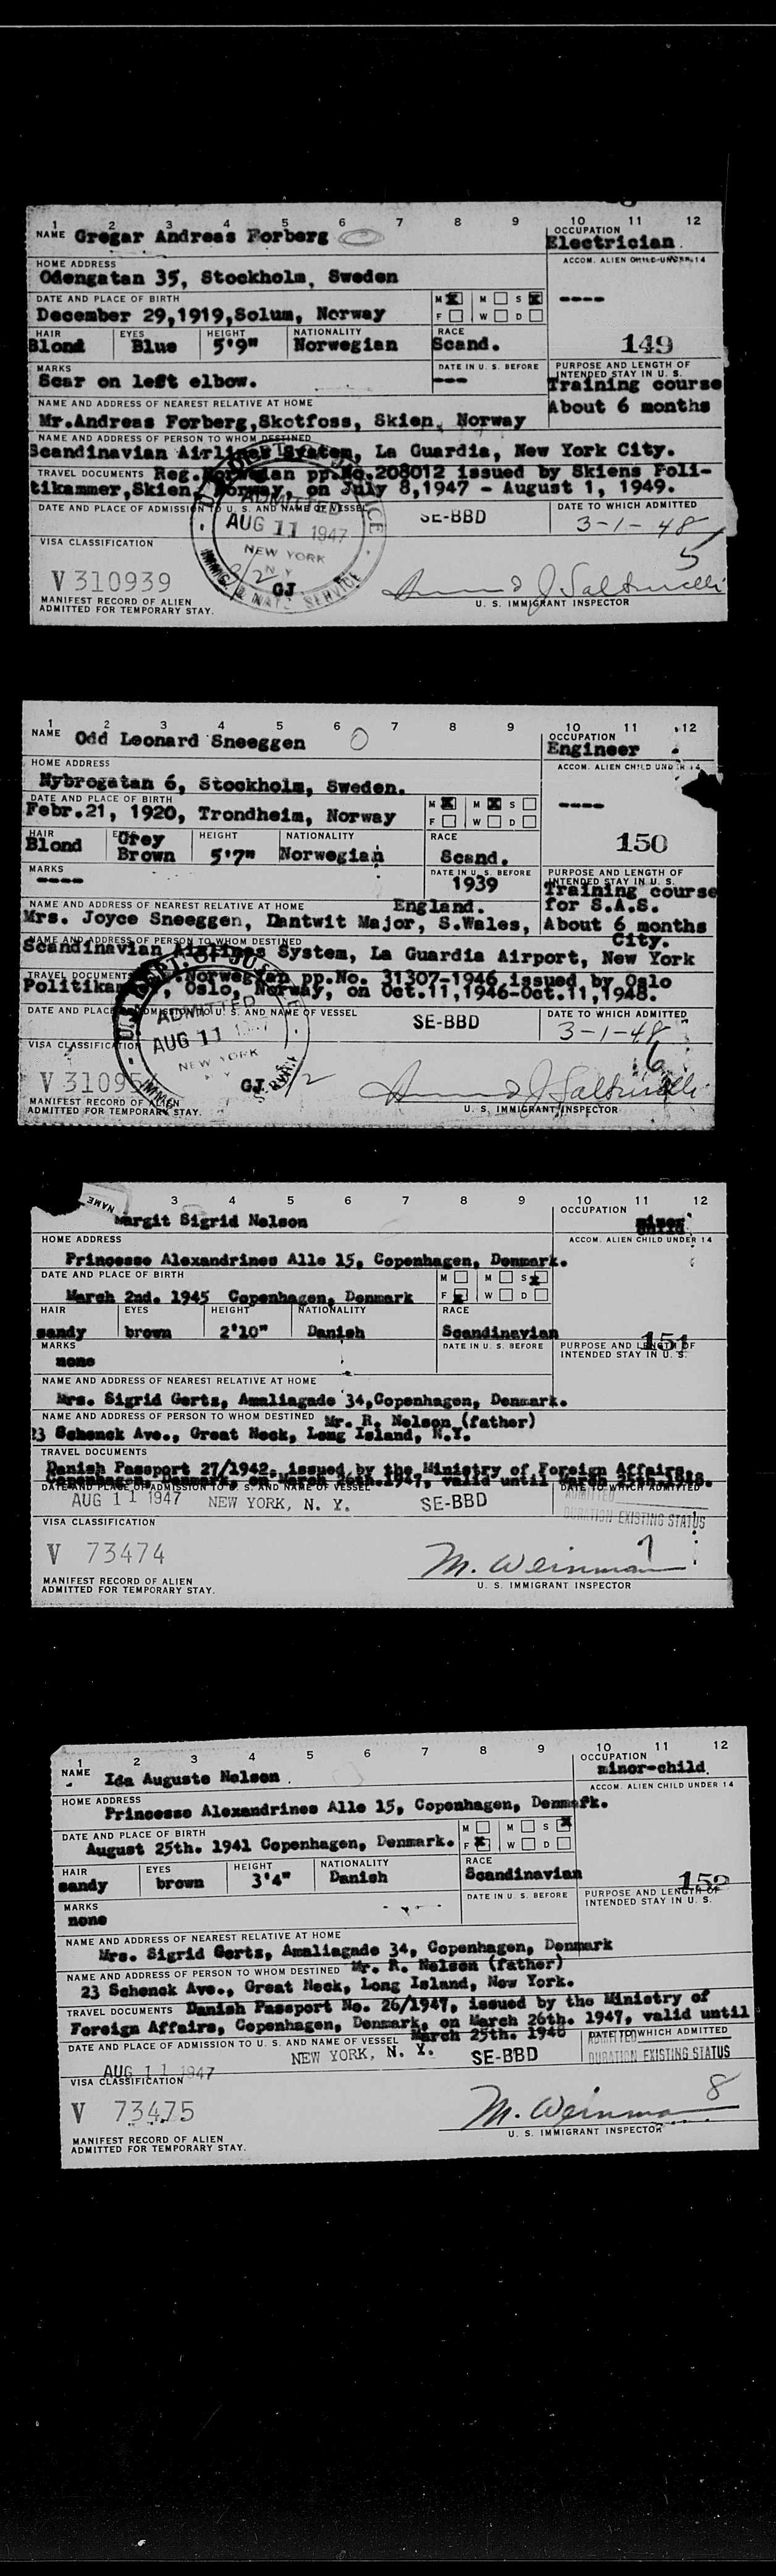 1 2 3 4 5 6 7 8 9 10 11 12
NAME Gregar Andreas Forberg
OCCUPATION
Electrician
HOME ADDRESS
ACCOM. ALIEN CHILD UNDER 14
Odengatan 35, Stockholm, Sweden
DATE AND PLACE OF BIRTH
M M S
----
December 29,1919,Solum, Norway
F W D
HAIR EYES HEIGHT NATIONALITY RACE
Blond Blue 5'9" Norwegian Scand.
149
MARKS
DATE IN U. S. BEFORE
PURPOSE AND LENGTH OF INTENDED STAY IN U. S.
Scar on left elbow.
---
Training course
About 6 months
NAME AND ADDRESS OF NEAREST RELATIVE AT HOME
Mr.Andreas Forberg,Skotfoss, Skien, Norway
NAME AND ADDRESS OF PERSON TO WHOM DESTINED
Scandinavian Airlines System, La Guardia, New York City.
TRAVEL DOCUMENTS Reg.Norwegian pp.No.208012 issued by Skiens Poli-
tikammer,Skien, Norway, on July 8,1947 - August 1, 1949.
DATE AND PLACE OF ADMISSION TO U. S. AND NAME OF VESSEL
DATE TO WHICH ADMITTED
ADMITTED
AUG 11 1947
NEW YORK
N. Y.
IMMIG. & NATZ. SERVICE
SE-BBD
3-1-48
5
VISA CLASSIFICATION
V 310939
GJ
MANIFEST RECORD OF ALIEN
ADMITTED FOR TEMPORARY STAY.
U. S. IMMIGRANT INSPECTOR
1 2 3 4 5 6 7 8 9 10 11 12
NAME Odd Leonard Sneeggen
OCCUPATION
Engineer
HOME ADDRESS
ACCOM. ALIEN CHILD UNDER 14
Nybrogatan 6, Stockholm, Sweden.
DATE AND PLACE OF BIRTH
M M S
----
Febr.21, 1920, Trondheim, Norway
F W D
HAIR EYES HEIGHT NATIONALITY RACE
Blond Grey Brown 5'7" Norwegian Scand.
150
MARKS
DATE IN U. S. BEFORE
PURPOSE AND LENGTH OF INTENDED STAY IN U. S.
----
1939
Training course
for S.A.S.
About 6 months
NAME AND ADDRESS OF NEAREST RELATIVE AT HOME
England.
Mrs. Joyce Sneeggen, Dantwit Major, S.Wales,
NAME AND ADDRESS OF PERSON TO WHOM DESTINED
City.
Scandinavian Airlines System, La Guardia Airport, New York
TRAVEL DOCUMENTS Norwegian pp.No. 31307-1946 issued by Oslo
Politikammer, Oslo, Norway, on Oct.11,1946-Oct.11,1948.
DATE AND PLACE OF ADMISSION TO U. S. AND NAME OF VESSEL
DATE TO WHICH ADMITTED
ADMITTED
AUG 11 1947
NEW YORK
N. Y.
SE-BBD
3-1-48
6
VISA CLASSIFICATION
GJ
MANIFEST RECORD OF ALIEN
ADMITTED FOR TEMPORARY STAY.
U. S. IMMIGRANT INSPECTOR
3 4 5 6 7 8 9 10 11 12
NAME
Margit Sigrid Nelson
OCCUPATION
HOME ADDRESS
ACCOM. ALIEN CHILD UNDER 14
Princesse Alexandrines Alle 15, Copenhagen, Denmark.
DATE AND PLACE OF BIRTH
M M S
March 2nd. 1945 Copenhagen, Denmark
F W D
HAIR EYES HEIGHT NATIONALITY RACE
sandy brown 2'10" Danish Scandinavian
151
MARKS
DATE IN U. S. BEFORE
PURPOSE AND LENGTH OF INTENDED STAY IN U. S.
none
NAME AND ADDRESS OF NEAREST RELATIVE AT HOME
Mrs. Sigrid Gertz, Amaliagade 34,Copenhagen, Denmark.
NAME AND ADDRESS OF PERSON TO WHOM DESTINED Mr. R. Nelson (father)
23 Schenck Ave., Great Neck, Long Island, N.Y.
TRAVEL DOCUMENTS
Danish Passport 27/1942, issued by the Ministry of Foreign Affairs,
Copenhagen, Denmark, on March 26th.1947, valid until March 25th.1948.
DATE AND PLACE OF ADMISSION TO U. S. AND NAME OF VESSEL
DATE TO WHICH ADMITTED
AUG 11 1947 NEW YORK, N. Y. SE-BBD
ADMITTED
DURATION EXISTING STATUS
VISA CLASSIFICATION
V 73474
M. Weinman
7
MANIFEST RECORD OF ALIEN
ADMITTED FOR TEMPORARY STAY.
U. S. IMMIGRANT INSPECTOR
1 2 3 4 5 6 7 8 9 10 11 12
NAME Ida Auguste Nelson
OCCUPATION
minor-child
HOME ADDRESS
ACCOM. ALIEN CHILD UNDER 14
Princesse Alexandrines Alle 15, Copenhagen, Denmark.
DATE AND PLACE OF BIRTH
M M S
August 25th. 1941 Copenhagen, Denmark.
F W D
HAIR EYES HEIGHT NATIONALITY RACE
sandy brown 3'4" Danish Scandinavian
152
MARKS
DATE IN U. S. BEFORE
PURPOSE AND LENGTH OF INTENDED STAY IN U. S.
none
NAME AND ADDRESS OF NEAREST RELATIVE AT HOME
Mrs. Sigrid Gertz, Amaliagade 34, Copenhagen, Denmark
NAME AND ADDRESS OF PERSON TO WHOM DESTINED Mr. R. Nelson (father)
23 Schenck Ave., Great Neck, Long Island, New York.
TRAVEL DOCUMENTS Danish Passport No. 26/1947, issued by the Ministry of
Foreign Affairs, Copenhagen, Denmark, on March 26th. 1947, valid until
March 25th. 1948
DATE AND PLACE OF ADMISSION TO U. S. AND NAME OF VESSEL
DATE TO WHICH ADMITTED
AUG 11 1947 NEW YORK, N. Y. SE-BBD
DURATION EXISTING STATUS
VISA CLASSIFICATION
V 73475
M. Weinman
8
MANIFEST RECORD OF ALIEN
ADMITTED FOR TEMPORARY STAY.
U. S. IMMIGRANT INSPECTOR